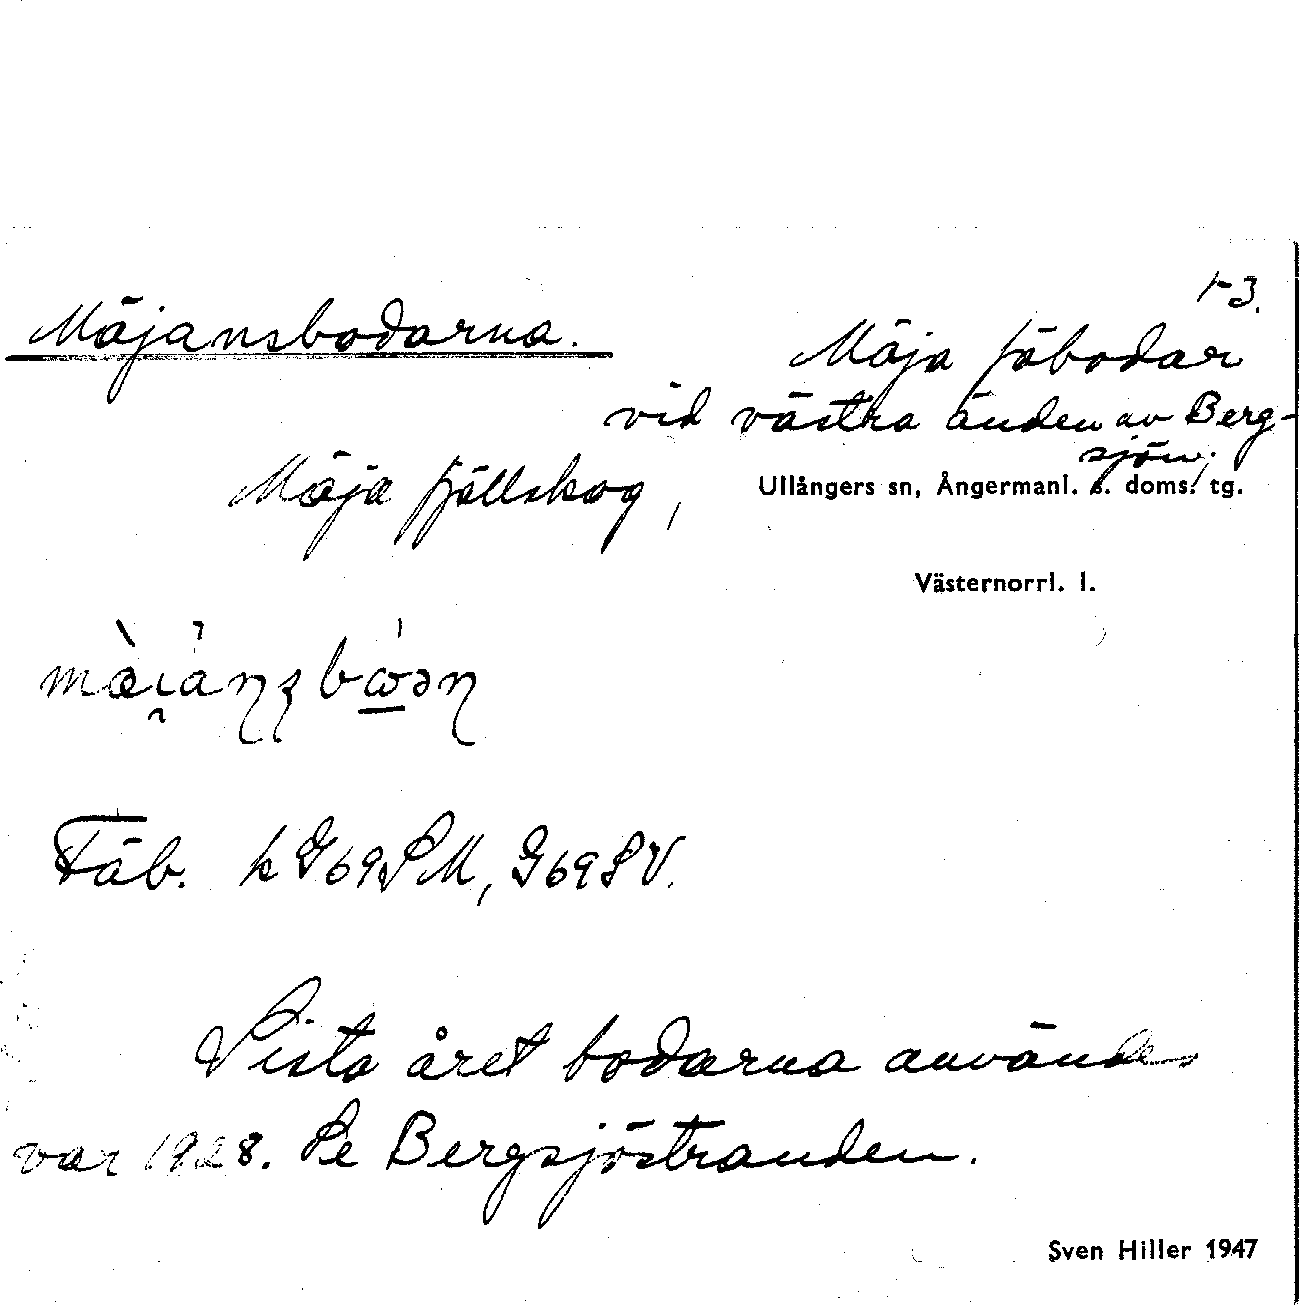 1-3.
Mäjansbodarna.
Mäja fäbodar
vid västra änden av Berg-
sjön,
Mäja fjällskog,
Ullångers sn, Ångermanl. s. doms. tg.
Västernorrl. l.
Fäb. k G69SM, G69SV.
Sista året bodarna användes
var 1928. Se Bergsjöstranden.
Sven Hiller 1947